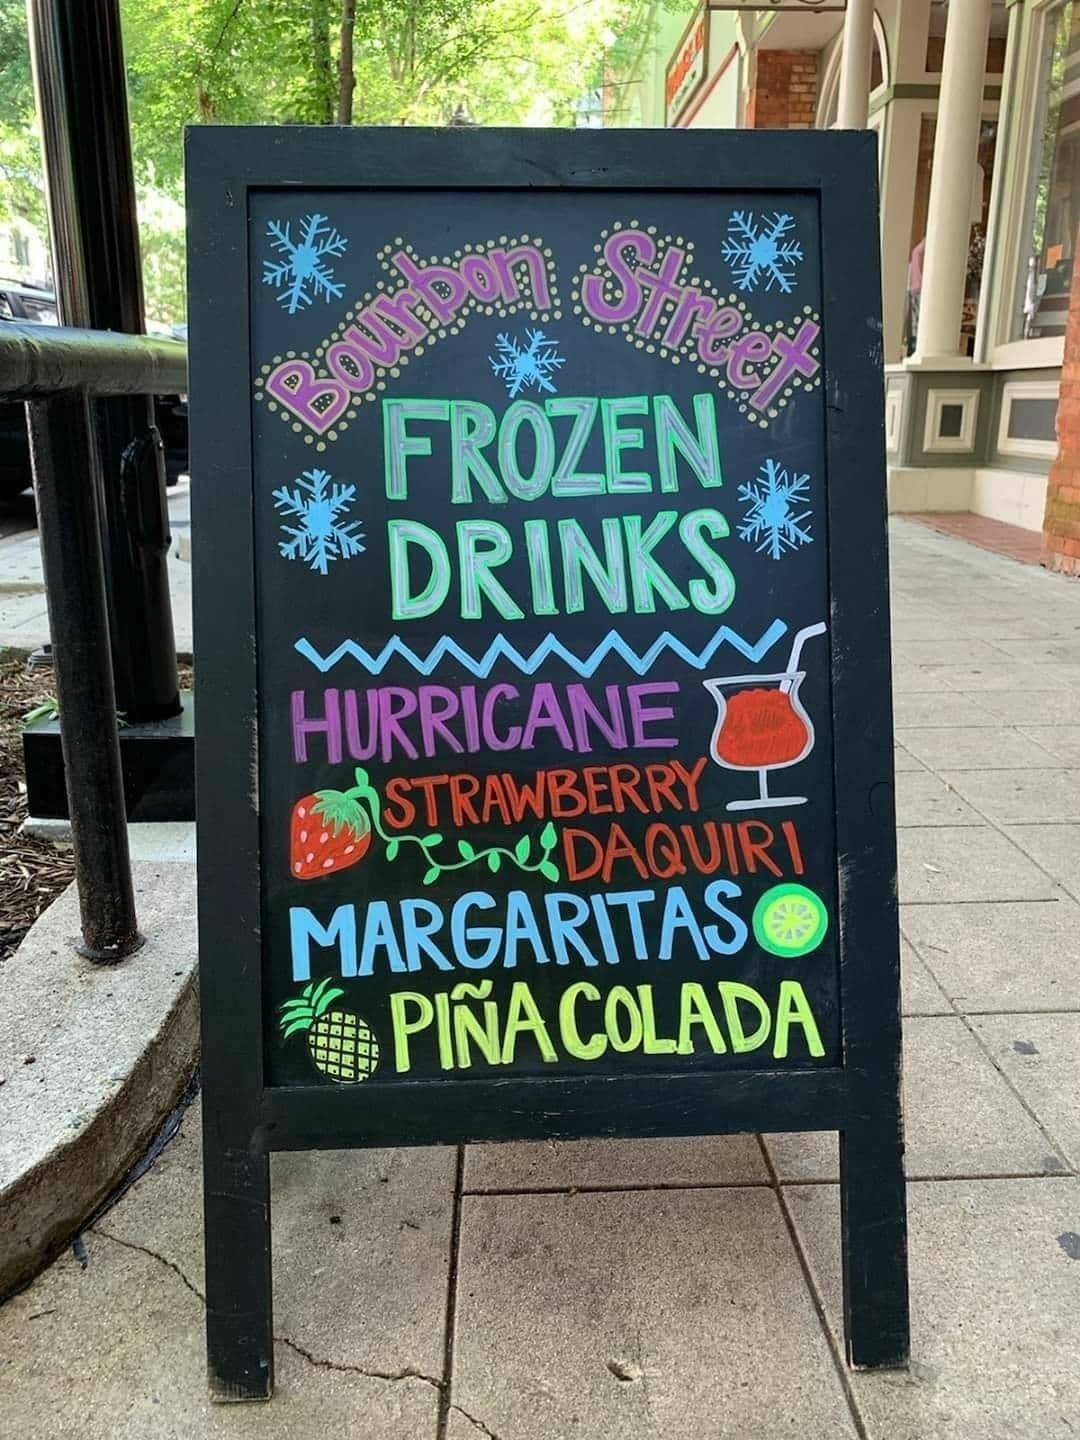 Bourbon Street
FROZEN
DRINKS
HURRICANE
STRAWBERRY
DAQUIRI
MARGARITAS
PIÑA COLADA